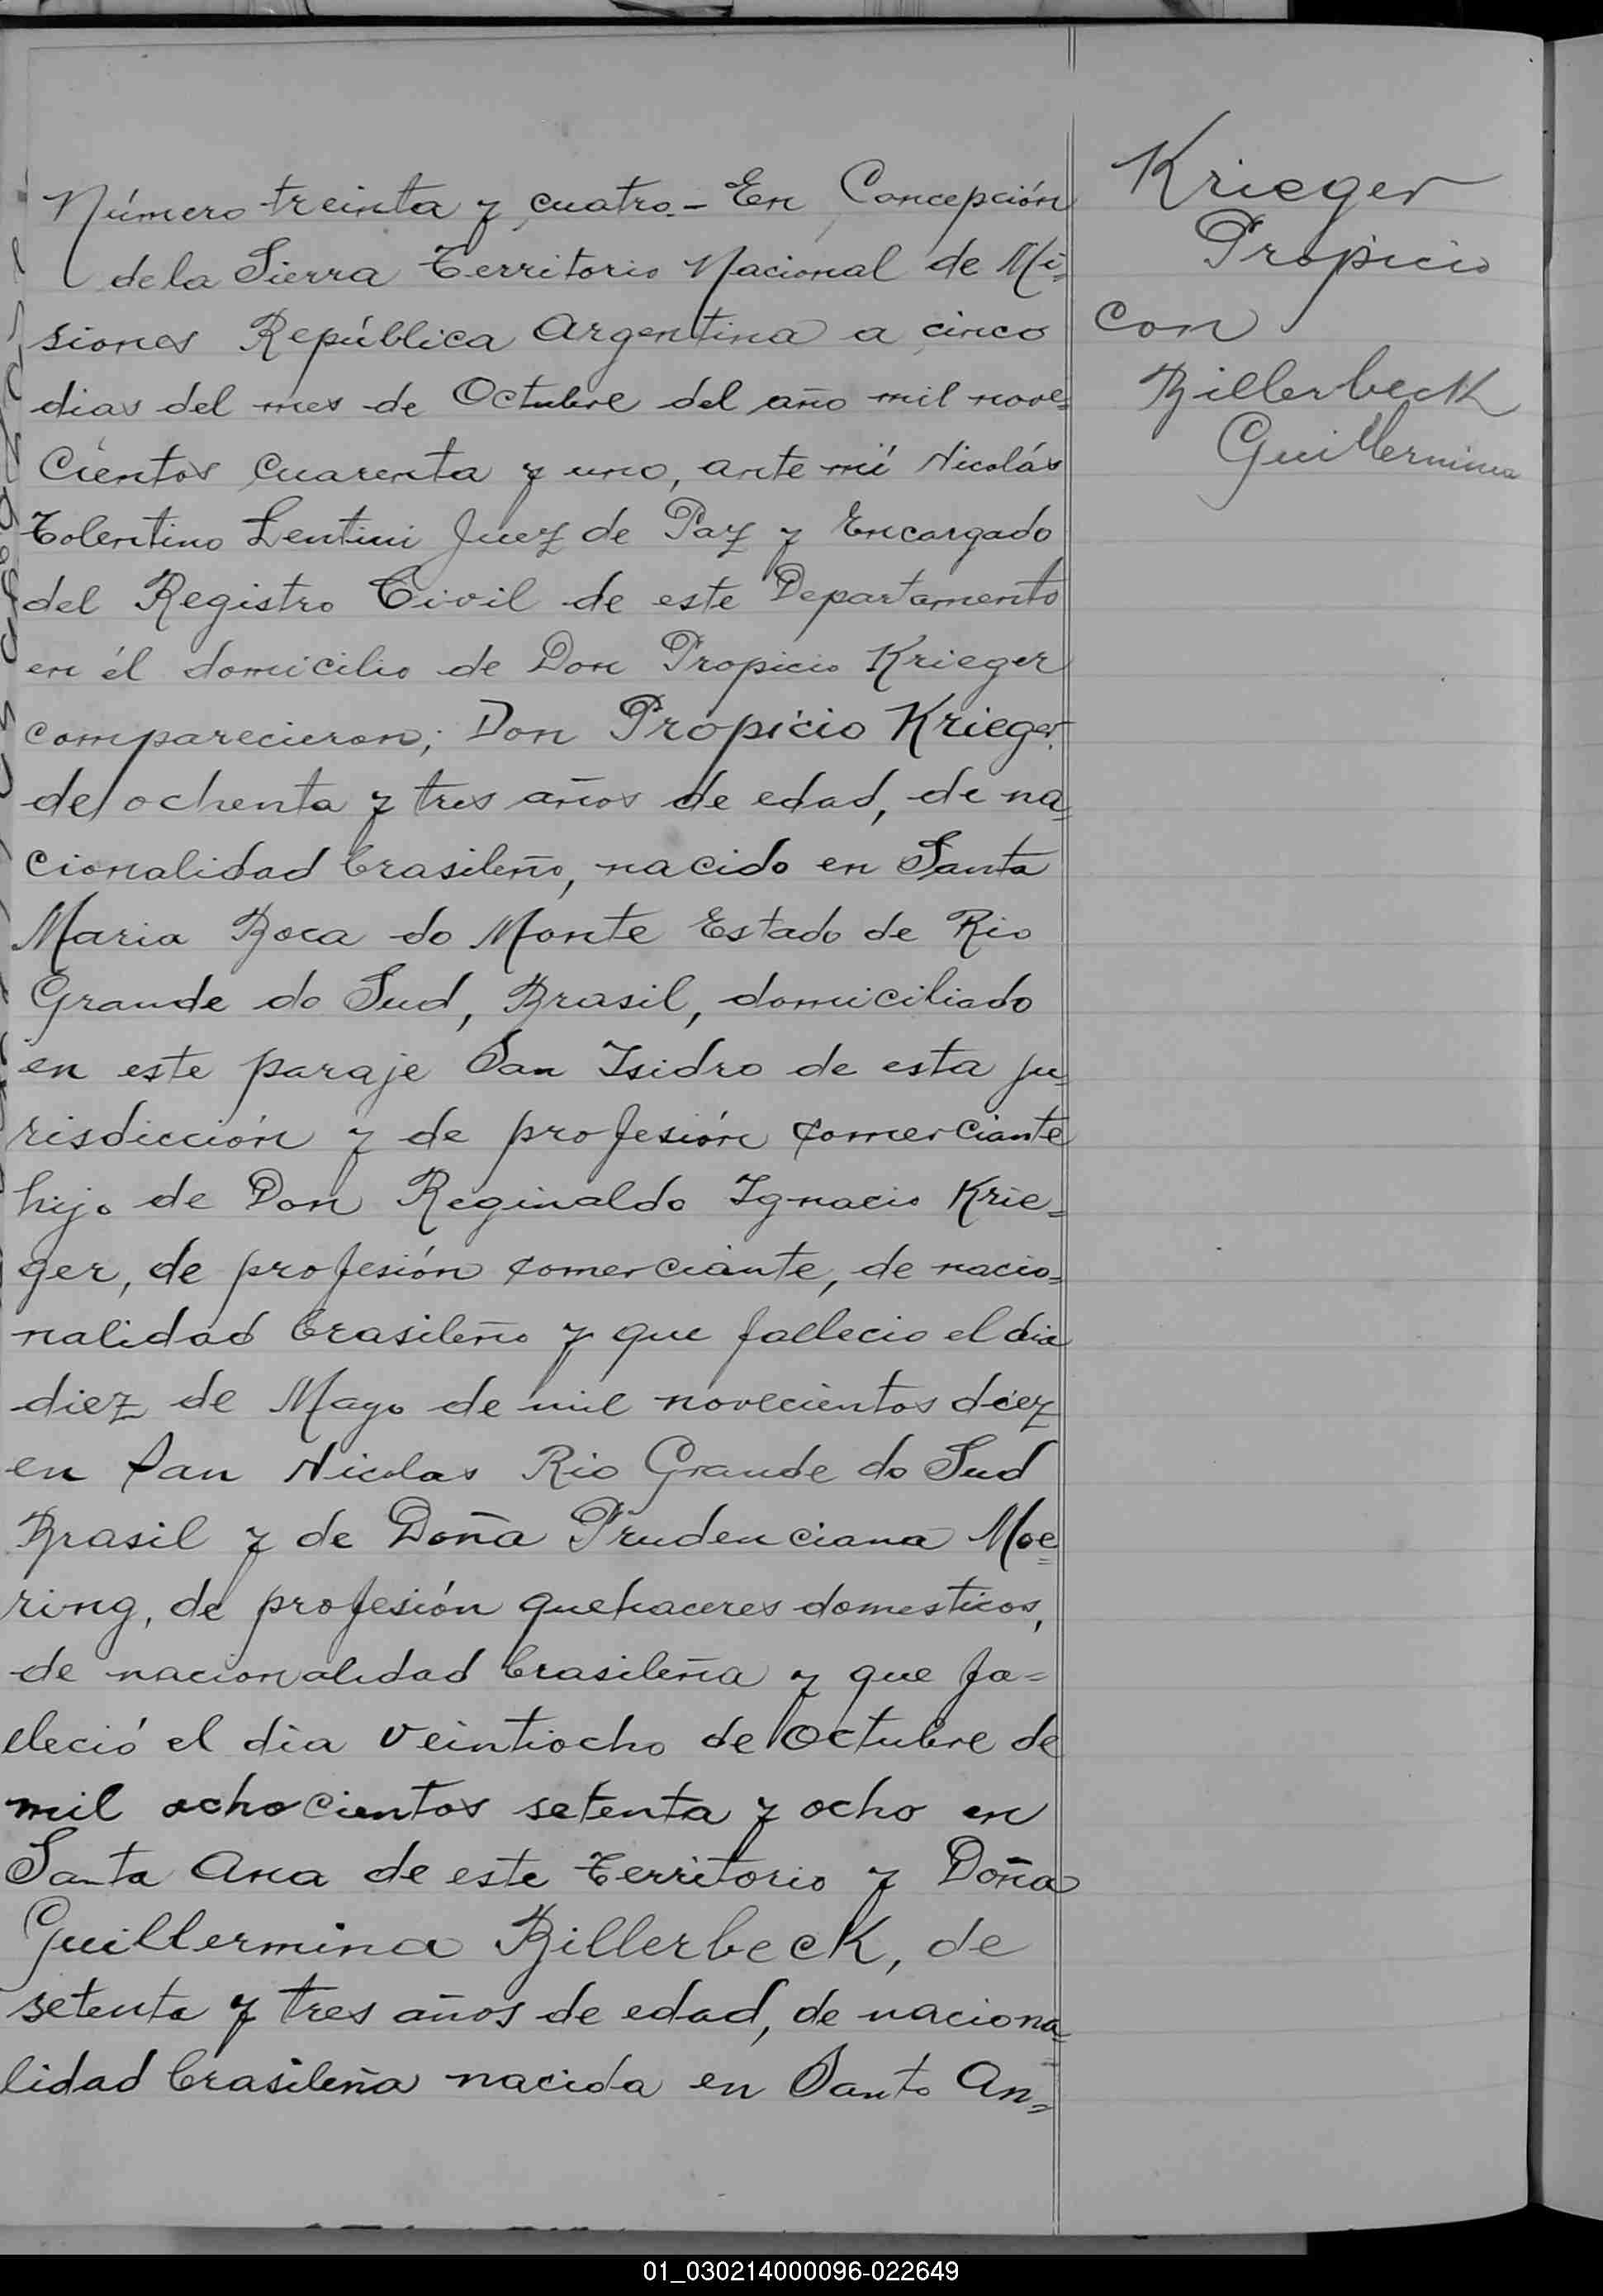 Número treinta y cuatro.- En Concepción
de la Sierra Territorio Nacional de Mi=
siones República Argentina a cinco
dias del mes de Octubre del año mil nove=
cientos cuarenta y uno, ante mí Nicolás
Tolentino Lentini Juez de Paz y Encargado
del Registro Civil de este Departamento
en él domicilio de Don Propicio Krieger
comparecieron; Don Propicio Krieger
de ochenta y tres años de edad, de na=
cionalidad brasileño, nacido en Santa
Maria Boca do Monte Estado de Rio
Grande do Sud, Brasil, domiciliado
en este paraje San Isidro de esta ju=
risdicción y de profesión comerciante
hijo de Don Reginaldo Ignacio Krie=
ger, de profesión comerciante, de nacio=
nalidad brasileño y que fallecio el dia
diez de Mayo de mil novecientos diez
en San Nicolas Rio Grande do Sud
Brasil y de Doña Prudenciana Moe=
ring, de profesión quehaceres domesticos,
de nacionalidad brasileña y que fa=
lleció el dia veintiocho de Octubre de
mil ochocientos setenta y ocho en
Santa Ana de este Territorio y Doña
Guillermina Billerbeck, de
setenta y tres años de edad, de naciona=
lidad brasileña nacida en Santo An=
Krieger
Propicio
con
Billerbeck
Guillermina
01_030214000096-022649